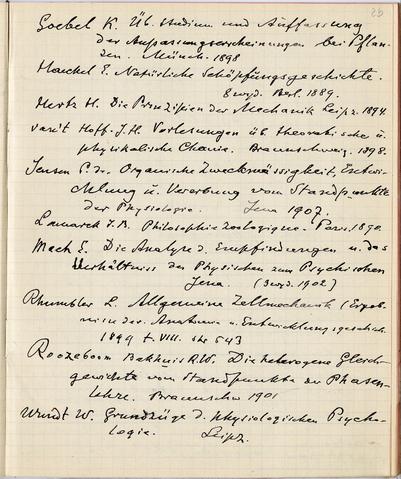 26
Goebel K. Üb. Studium und Auffassung
der Anpassungserscheinungen bei Pflan-
zen. Münch. 1898
Haeckel E. Natürliche Schöpfungsgeschichte.
8 wyd. Berl. 1889.
Hertz H. Die Prinzipien der Mechanik Leipz. 1894.
van't Hoff. J.H. Vorlesungen üb. theoretische u
physikalische Chemie. Braunschweig. 1898.
Jensen P. Organische Zweckmässigkeit, Entwi-
cklung u. Vererbung vom Standpunkte
der Physiologie. Jena 1907.
Lamarck J.B. Philosophie zoologique. Paris. 1890.
Mach E. Die Analyse d. Empfindungen u. das
Verhältniss des Physischen zum Psychischen
Jena. (3 wyd. 1902)
Rhumbler L. Allgemeine Zellmechanik (Ergeb-
nisse der Anatomie u. Entwicklungsgeschich.
1899 t. VIII. str 543
Roozeboom Bakhuis R.W. Die heterogene Gleich-
gewichte vom Standpunkte der Phasen-
lehre. Braunschw 1901
Wundt W. Grundzüge d. physiologischen Psycho-
logie. Leipz.